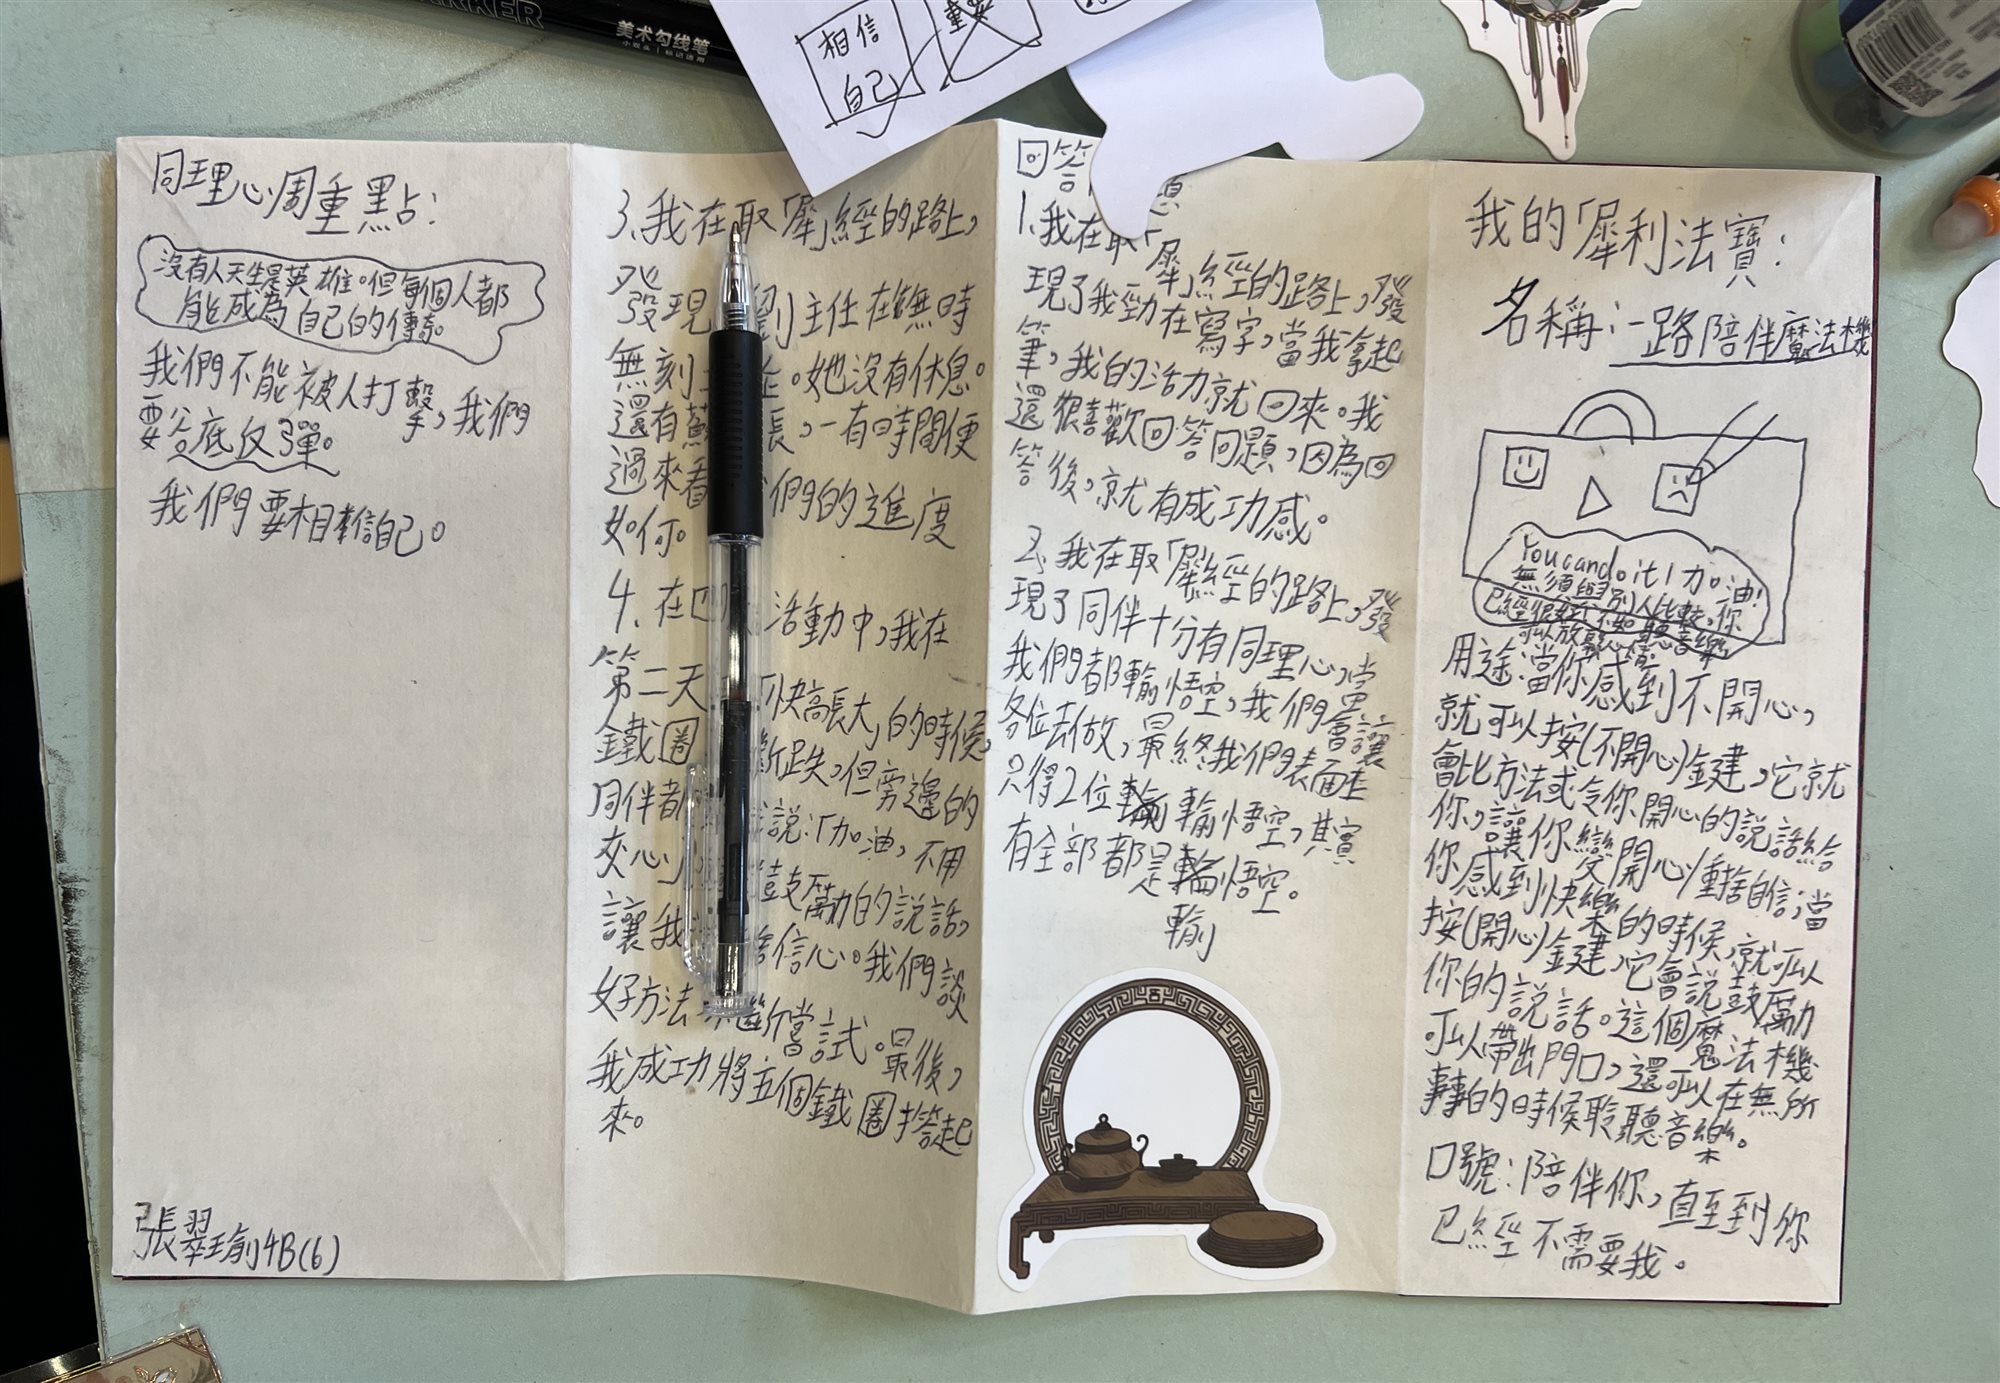 美术勾线笔
相信
自己
同理心周重點：
沒有人天生是英雄。但每個人都
能成為自己的傳奇。
我們不能被人打擊，我們
要谷底反彈。
我們要相信自己。
張翠瑜4B(6)
3.我在取「犀」經的路上，
發現 劉主任在無時
無刻 。她沒有休息。
還有蘇 長，一有時間便
過來看 們的進度
如何。
4.在四 活動中，我在
第二天 「快高長大」的時候，
鐵圈 斷跌，但旁邊的
同伴都 說：「加油，不用
灰心」， 鼓勵的說話，
讓我 信心。我們談
好方法 斷嘗試。最後，
我成功將五個鐵圈搭起
來。
回答 題
1.我在取「犀」經的路上，發
現了我勁在寫字，當我拿起
筆，我的活力就回來。我
還很喜歡回答回題，因為回
答後，就有成功感。
2.我在取「犀」經的路上，發
現了同伴十分有同理心，當
我們都輸悟空，我們會讓
各位去做，最終我們表面上
只得2位輸悟空，其實
有全部都是輸悟空。
我的「犀利法寶：
名稱：一路陪伴魔法機
You can do it! 加油!
無須與別人比較，你
已經很好了，不如聽音樂
可以放鬆心情
用途：當你感到不開心，
就可以按(不開心)鍵，它就
會比方法或令你開心的說話給
你，讓你變開心，重拾自信；當
你感到快樂的時候，就可以
按(開心)鍵，它會說鼓勵
你的說話。這個魔法機
可以帶出門口，還可以在無所
事的時候聆聽音樂。
口號：陪伴你，直至到你
已經不需要我。